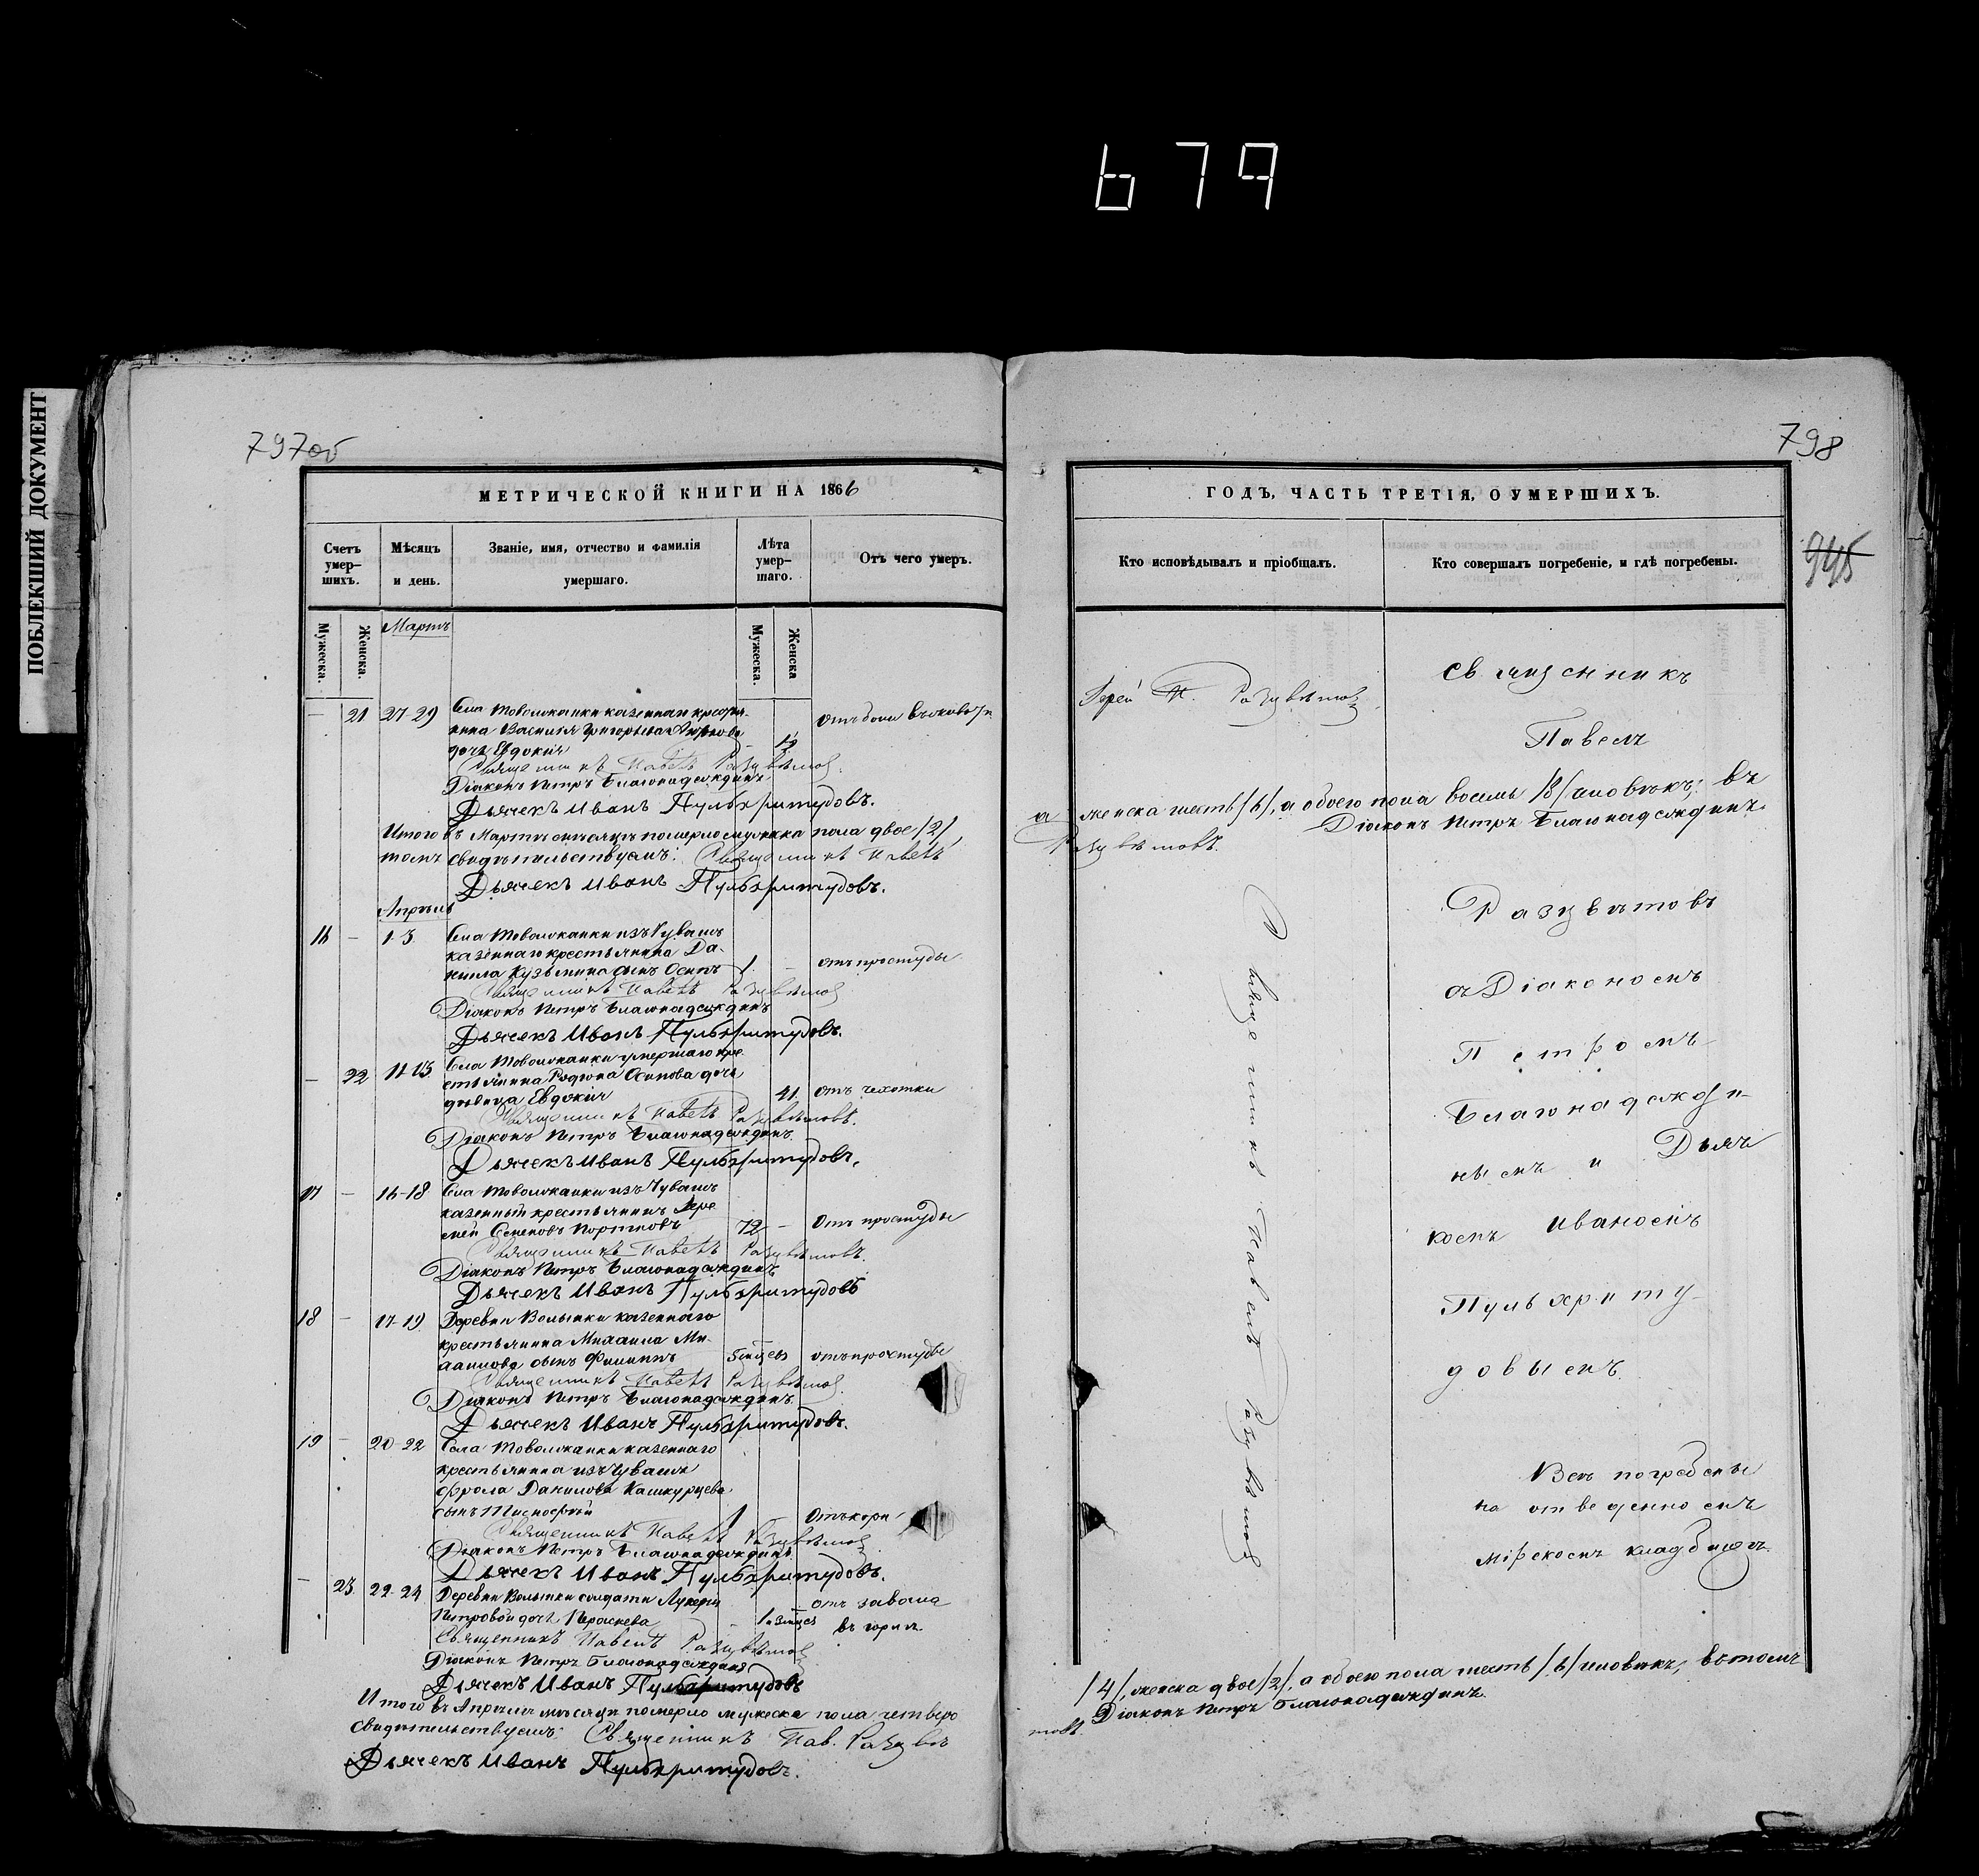 679
ПОБЛЕКШИЙ ДОКУМЕНТ
797об
МЕТРИЧЕСКОЙ КНИГИ НА 1866
Счетъ умер-шихъ.
Мѣсяцъ и день.
Званіе, имя, отчество и фамилія умершаго.
Лѣта умер-шаго.
Отъ чего умеръ.
Мужеска.
Женска.
Мартъ
Мужеска.
Женска
— 21 27-29 Села Товолжанки казеннаго крестья-
нина Василія Григорьева
дочь Евдокія
Священникъ Павелъ Разцвѣтов
Діаконъ Петръ Благонадеждинъ
Дьячекъ Иванъ Пульхритудовъ.
Итого въ Мартѣ мѣсяцѣ померло мужеска пола двое /2/,
томъ свидѣтельствуемъ: Священникъ Павелъ
Дьячекъ Иванъ Пульхритудовъ.
Апрѣль
16 — 1-3 Села Товолжанки изъ Чувашъ
казеннаго крестьянина Да-
нила Кузьмина сынъ Осипъ 1 — отъ простуды
Священникъ Павелъ Разцвѣтов
Діаконъ Петръ Благонадеждинъ
Дьячекъ Иванъ Пульхритудовъ.
— 22 11-13 Села Товолжанки умершаго кре-
стьянина Родіона Осипова дочь
дѣвица Евдокія 41 отъ чахотки
Священникъ Павелъ Разцвѣтовъ.
Діаконъ Петръ Благонадеждинъ
Дьячекъ Иванъ Пульхритудовъ.
17 — 16-18 Села Товолжанки изъ Чувашъ
казенный крестьянинъ Ере
мей Семеновъ Портновъ 72 — Отъ простуды
Священникъ Павелъ Разцвѣтовъ.
Діаконъ Петръ Благонадеждинъ
Дьячекъ Иванъ Пульхритудовъ
18 — 17-19 Деревни казеннаго
крестьянина Михаила Ми-
хаилова сынъ Филиппъ отъ простуды
Священникъ Павелъ Разцвѣтов
Діаконъ Петръ Благонадеждинъ.
Дьячекъ Иванъ Пульхритудовъ.
19 — 20-22 Села Товолжанки казеннаго
крестьянина изъ Чувашъ
Фрола Данилова Кашкурцева
сынъ Тимофей 1 Отъ кори
Священникъ Павелъ Разцвѣтов
Діаконъ Петръ Благонадеждинъ
Дьячекъ Иванъ Пульхритудовъ.
— 23 22-24 Деревни солдатки Лукерьи
Петровой дочь Параскева отъ завала
въ горлѣ
Священникъ Павелъ Разцвѣтов
Діаконъ Петръ Благонадеждинъ
Дьячекъ Иванъ Пульхритудовъ
Итого въ Апрѣлѣ мѣсяцѣ померло мужеска пола четверо
свидѣтельствуемъ: Священникъ Пав. Разцвѣ
Дьячекъ Иванъ Пульхритудовъ.
798
ГОДЪ, ЧАСТЬ ТРЕТІЯ, О УМЕРШИХЪ.
945
Кто исповѣдывалъ и пріобщалъ.
Кто совершалъ погребеніе, и гдѣ погребены.
Іерей П. Разцвѣтов
священникъ
Павелъ
а женска шесть /6/, а обоего пола восемь /8/ человѣкъ; въ
Діаконъ Петръ Благонадеждинъ.
Разцвѣтовъ.
Разцвѣтовъ
съ Діакономъ
Петромъ
Благонадежди-
нымъ и Дьяч
комъ Иваномъ
Пульхриту-
довымъ.
Священникъ Павелъ Разцвѣтов
Всѣ погребены
на отведенномъ
мірскомъ кладбищѣ.
/4/, женска двое /2/, а обоего пола шесть /6/ человѣкъ, въ томъ
Діаконъ Петръ Благонадеждинъ.
товъ.